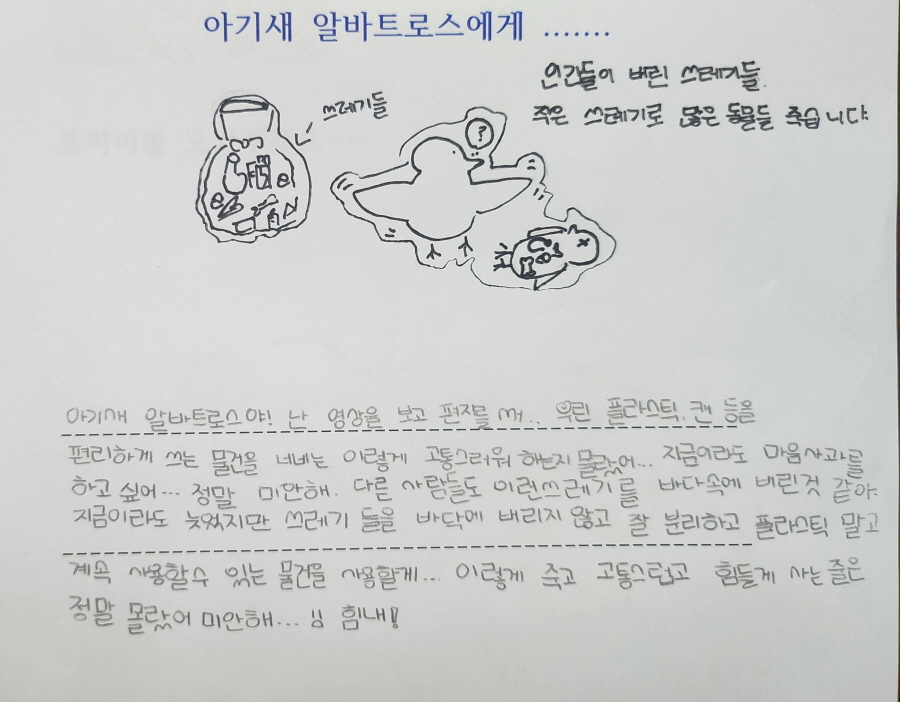 아기새 알바트로스에게 .......
인간들이 버린 쓰레기들.
작은 쓰레기로 많은 동물들 죽습니다
쓰레기들
?
아기새 알바트로스야! 난 영상을 보고 편지를 써... 우린 플라스틱, 캔 등을
편리하게 쓰는 물건을 너네는 이렇게 고통스러워 하는지 몰랐어... 지금이라도 마음사과를
하고 싶어... 정말 미안해. 다른 사람들도 이런쓰레기를 바다속에 버린것 같아.
지금이라도 늦었지만 쓰레기 들을 바닥에 버리지 않고 잘 분리하고 플라스틱 말고
계속 사용할수 있는 물건을 사용할게... 이렇게 죽고 고통스럽고 힘들게 사는 줄은
정말 몰랐어 미안해... 힘내!